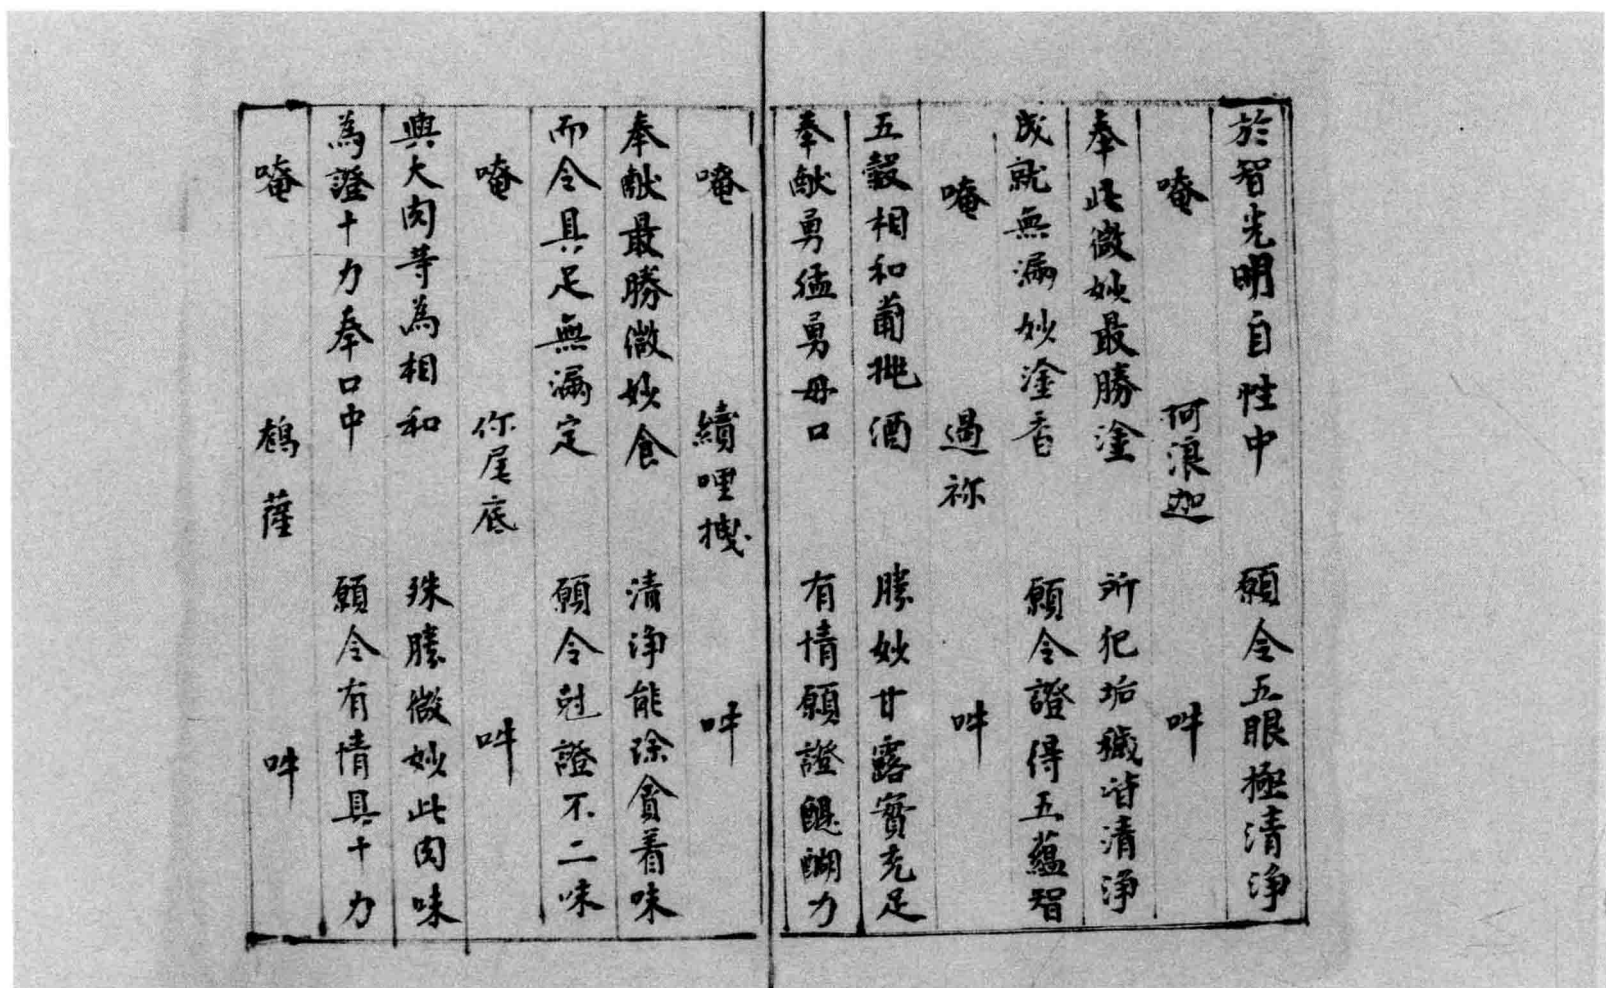 於智光明自性中　願令五眼極清淨
唵　阿浪迦　吽
奉此微妙最勝塗　所犯垢穢皆清淨
成就無漏妙塗香　願令證得五蘊智
唵　遏祢　吽
五穀相和蔔桃酒　勝妙甘露實充足
奉献勇猛勇母口　有情願證醍醐力
唵　續哩拽　吽
奉献最勝微妙食　清淨能除貪着味
而令具足無漏定　願令尅證不二味
唵　你尾底　吽
與大肉等為相和　殊勝微妙此肉味
為證十力奉口中　願令有情具十力
唵　鶴薩　吽